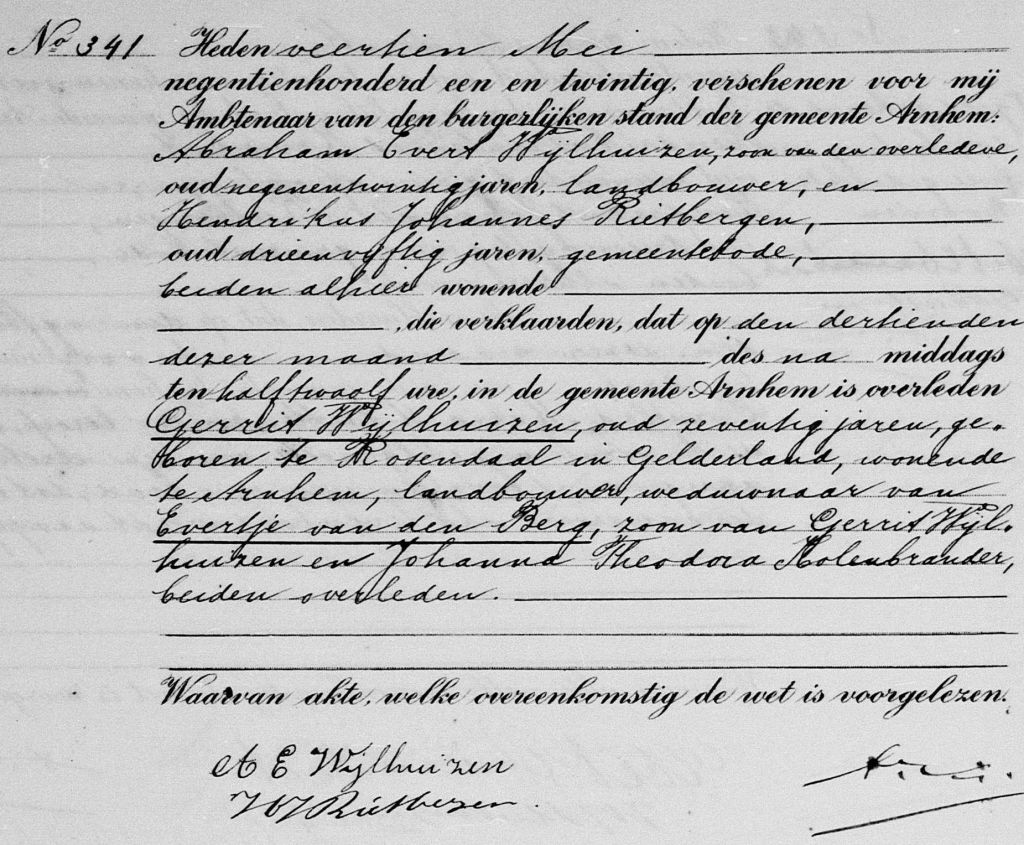 No 341 Heden veertien Mei
negentienhonderd een en twintig, verschenen voor mij
Ambtenaar van den burgerlijken stand der gemeente Arnhem:
Abraham Evert Wijlhuizen, zoon van den overledene,
oud negenentwintig jaren, landbouwer, en
Hendrikus Johannes Rietbergen,
oud drieenvijftig jaren, gemeentebode,
beiden alhier wonende
, die verklaarden, dat op den dertienden
dezer maand des na middags
ten halftwaalf ure, in de gemeente Arnhem is overleden
Gerrit Wijlhuizen, oud zeventig jaren, ge-
boren te Rosendaal in Gelderland, wonende
te Arnhem, landbouwer, weduwnaar van
Evertje van den Berg, zoon van Gerrit Wijl-
huizen en Johanna Theodora Kolenbrander,
beiden overleden.
Waarvan akte, welke overeenkomstig de wet is voorgelezen.
A E Wijlhuizen
HJ Rietbergen.